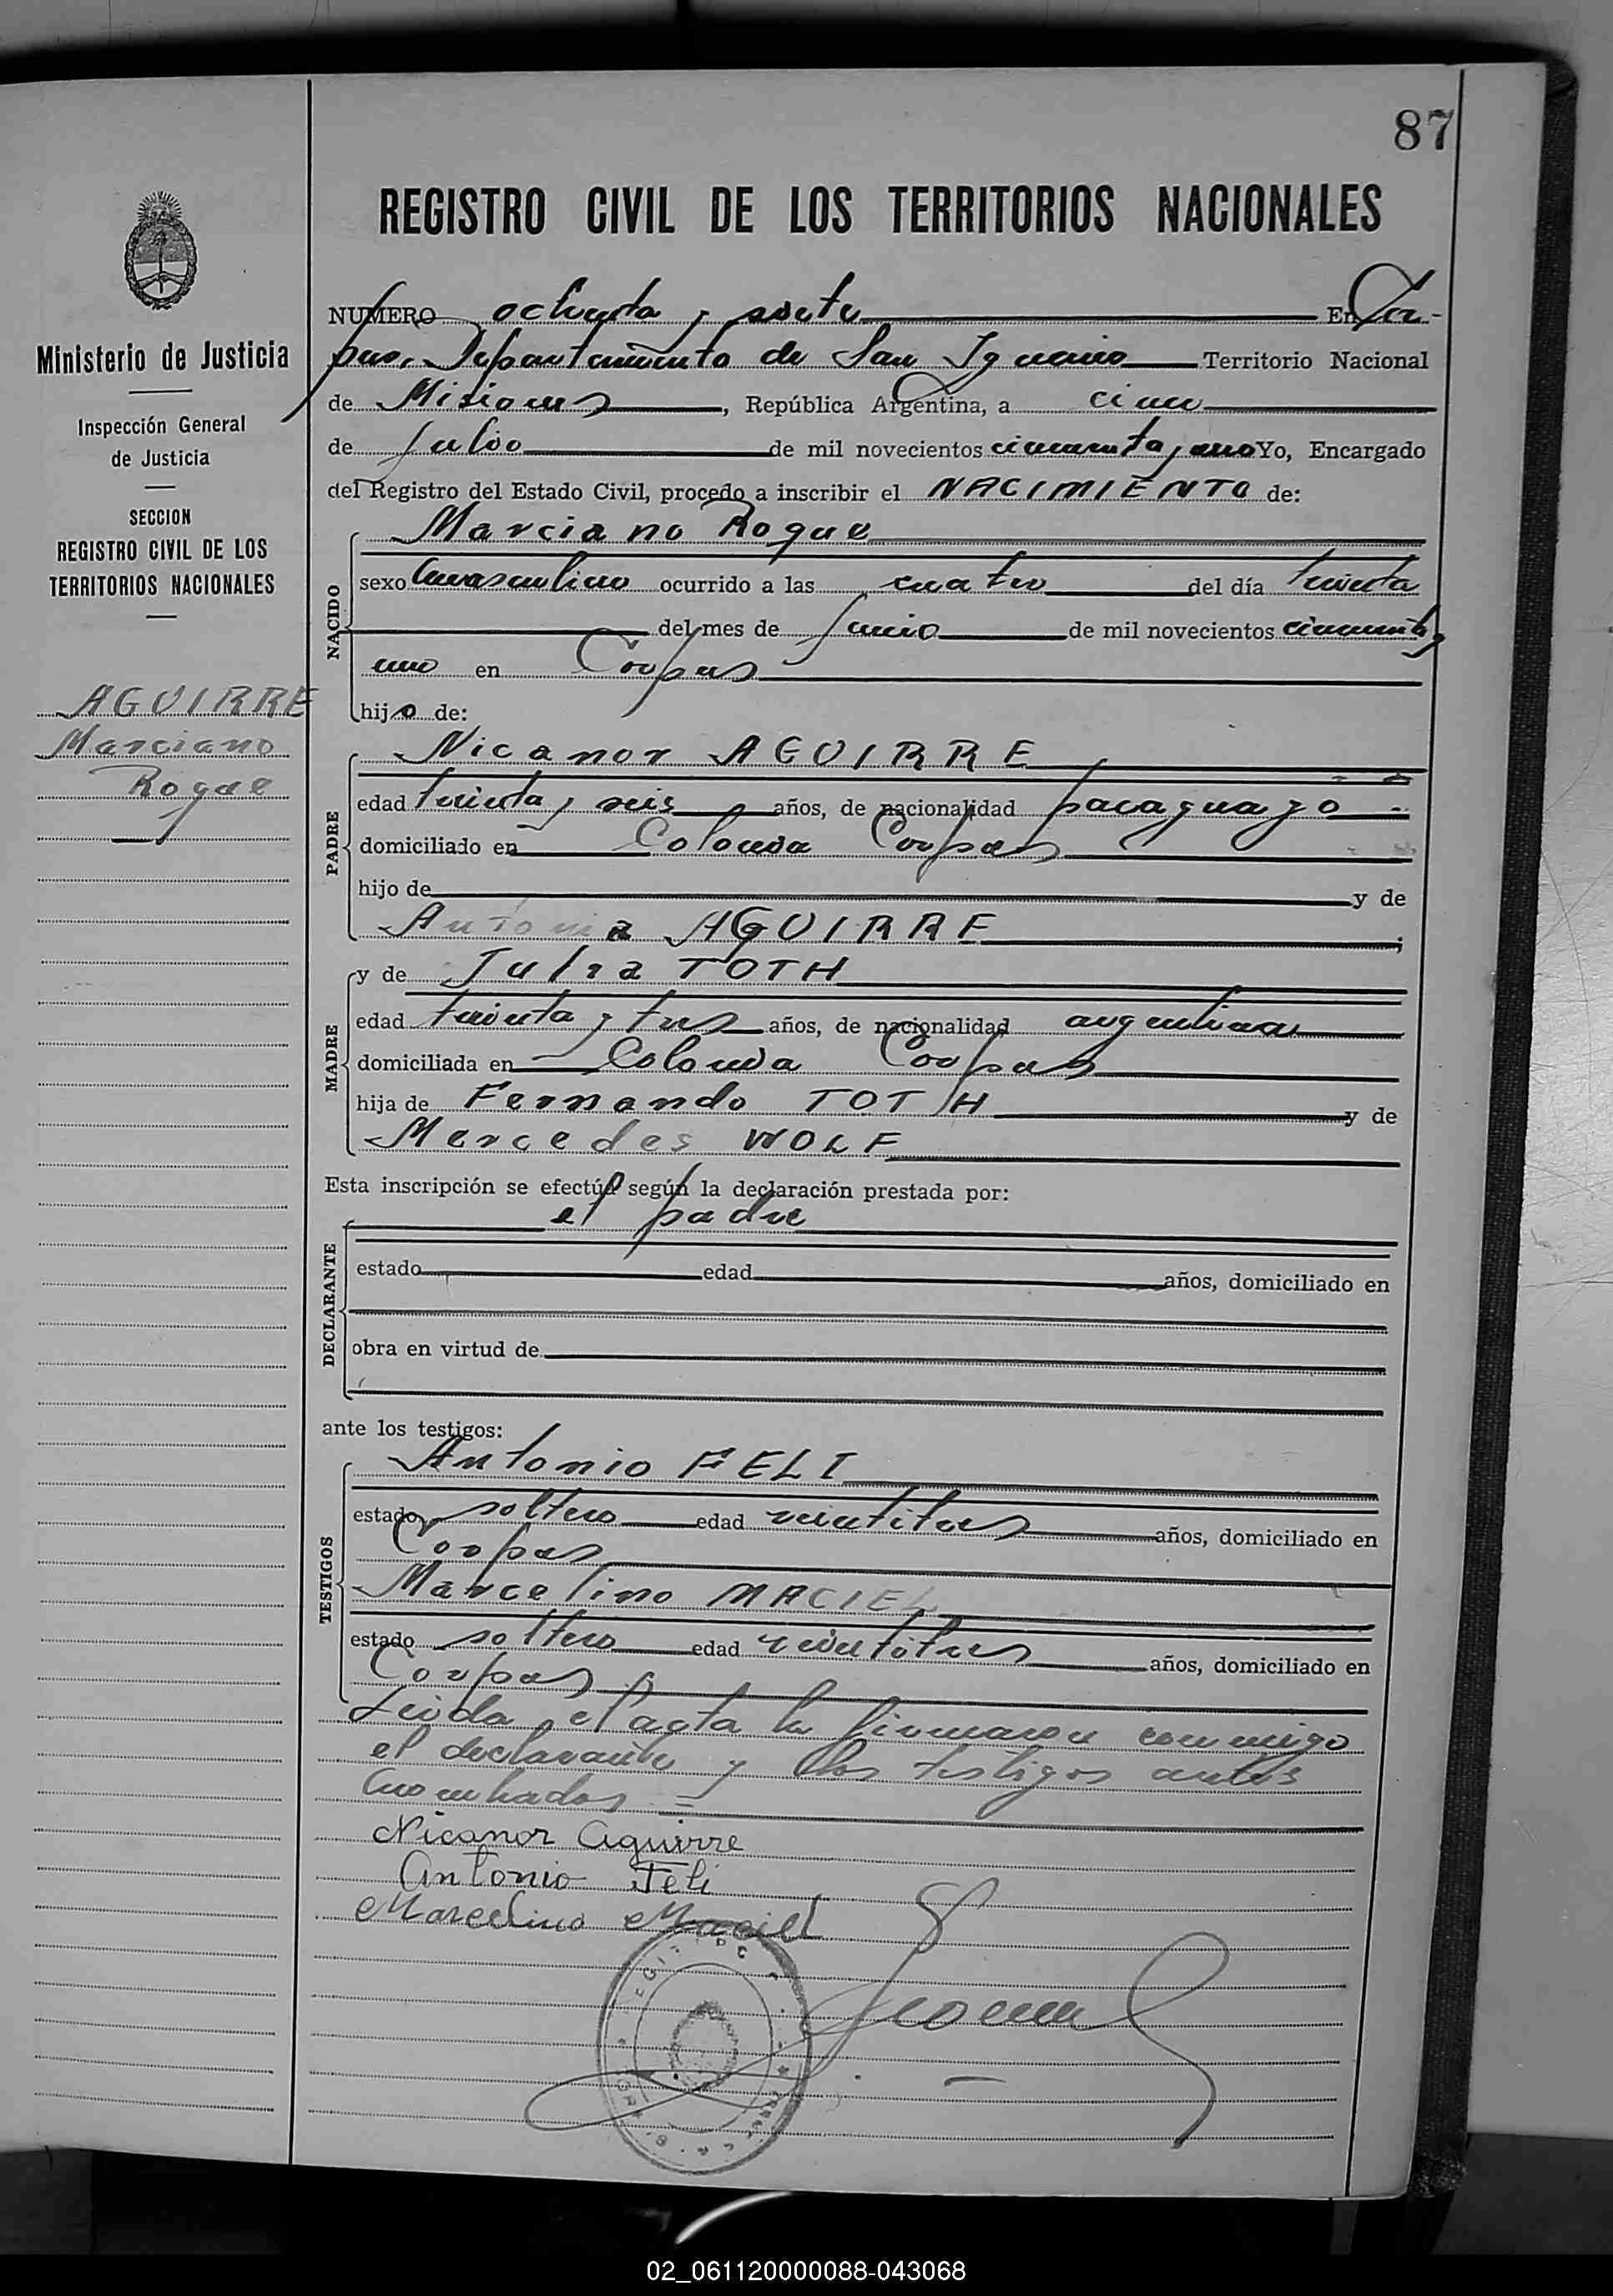 87
REGISTRO CIVIL DE LOS TERRITORIOS NACIONALES
Ministerio de Justicia
Inspección General
de Justicia
SECCION
REGISTRO CIVIL DE LOS
TERRITORIOS NACIONALES
AGUIRRE
Marciano
Roque
NUMERO ochenta y siete En Cor-
pus, Departamento de San Ignacio Territorio Nacional
de Misiones, República Argentina, a cinco
de Julio de mil novecientos cincuenta y uno Yo, Encargado
del Registro del Estado Civil, procedo a inscribir el NACIMIENTO de:
NACIDO
Marciano Roque
sexo masculino ocurrido a las cuatro del día treinta
del mes de Junio de mil novecientos cincuenta y
uno en Corpus
hijo de:
PADRE
Nicanor AGUIRRE
edad treinta y seis años, de nacionalidad paraguayo
domiciliado en Colonia Corpus
hijo de y de
Antonia AGUIRRE;
MADRE
y de Julia TOTH
edad treinta y tres años, de nacionalidad argentina
domiciliada en Colonia Corpus
hija de Fernando TOTH y de
Mercedes WOLF
Esta inscripción se efectúa según la declaración prestada por:
DECLARANTE
el padre
estado edad años, domiciliado en
obra en virtud de
ante los testigos:
TESTIGOS
Antonio FELI
estado soltero edad veintitres años, domiciliado en
Corpus
Marcelino MACIEL
estado soltero edad veintitres años, domiciliado en
Corpus
Leída el acta la firmaron conmigo
el declarante y los testigos antes
nombrados =
Nicanor Aguirre
Antonio Feli
Marcelino Maciel
02_061120000088-043068